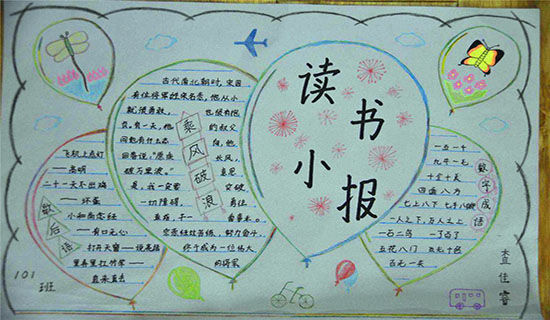 读书
小报
古代南北朝时,宋国
有位将军姓宗名悫,他从小
就很勇敢, 也很有抱
负,有一天,他 的叔父
问他有什么志 向,他
回答说:"愿乘 长风,
破万里浪。" 意思
是,我一定要 突破
一切障碍, 勇往
直前,干一 番事业。
宗悫经过苦练,努力奋斗,
终于成为一位伟大
的将军
乘风破浪
飞机上点灯
——高明
二十一天不出鸡
——坏蛋
小和尚念经
——有口无心
打开天窗——说亮话
里弄里扛竹竿——
直来直去
歇后语
一五一十
九牛一毛
十全十美
四面八方
七上八下 七手八脚
一人之下,万人之上
一石二鸟 一了百了
五花八门 五光十色
百无一失
数字成语
101
班
查佳睿